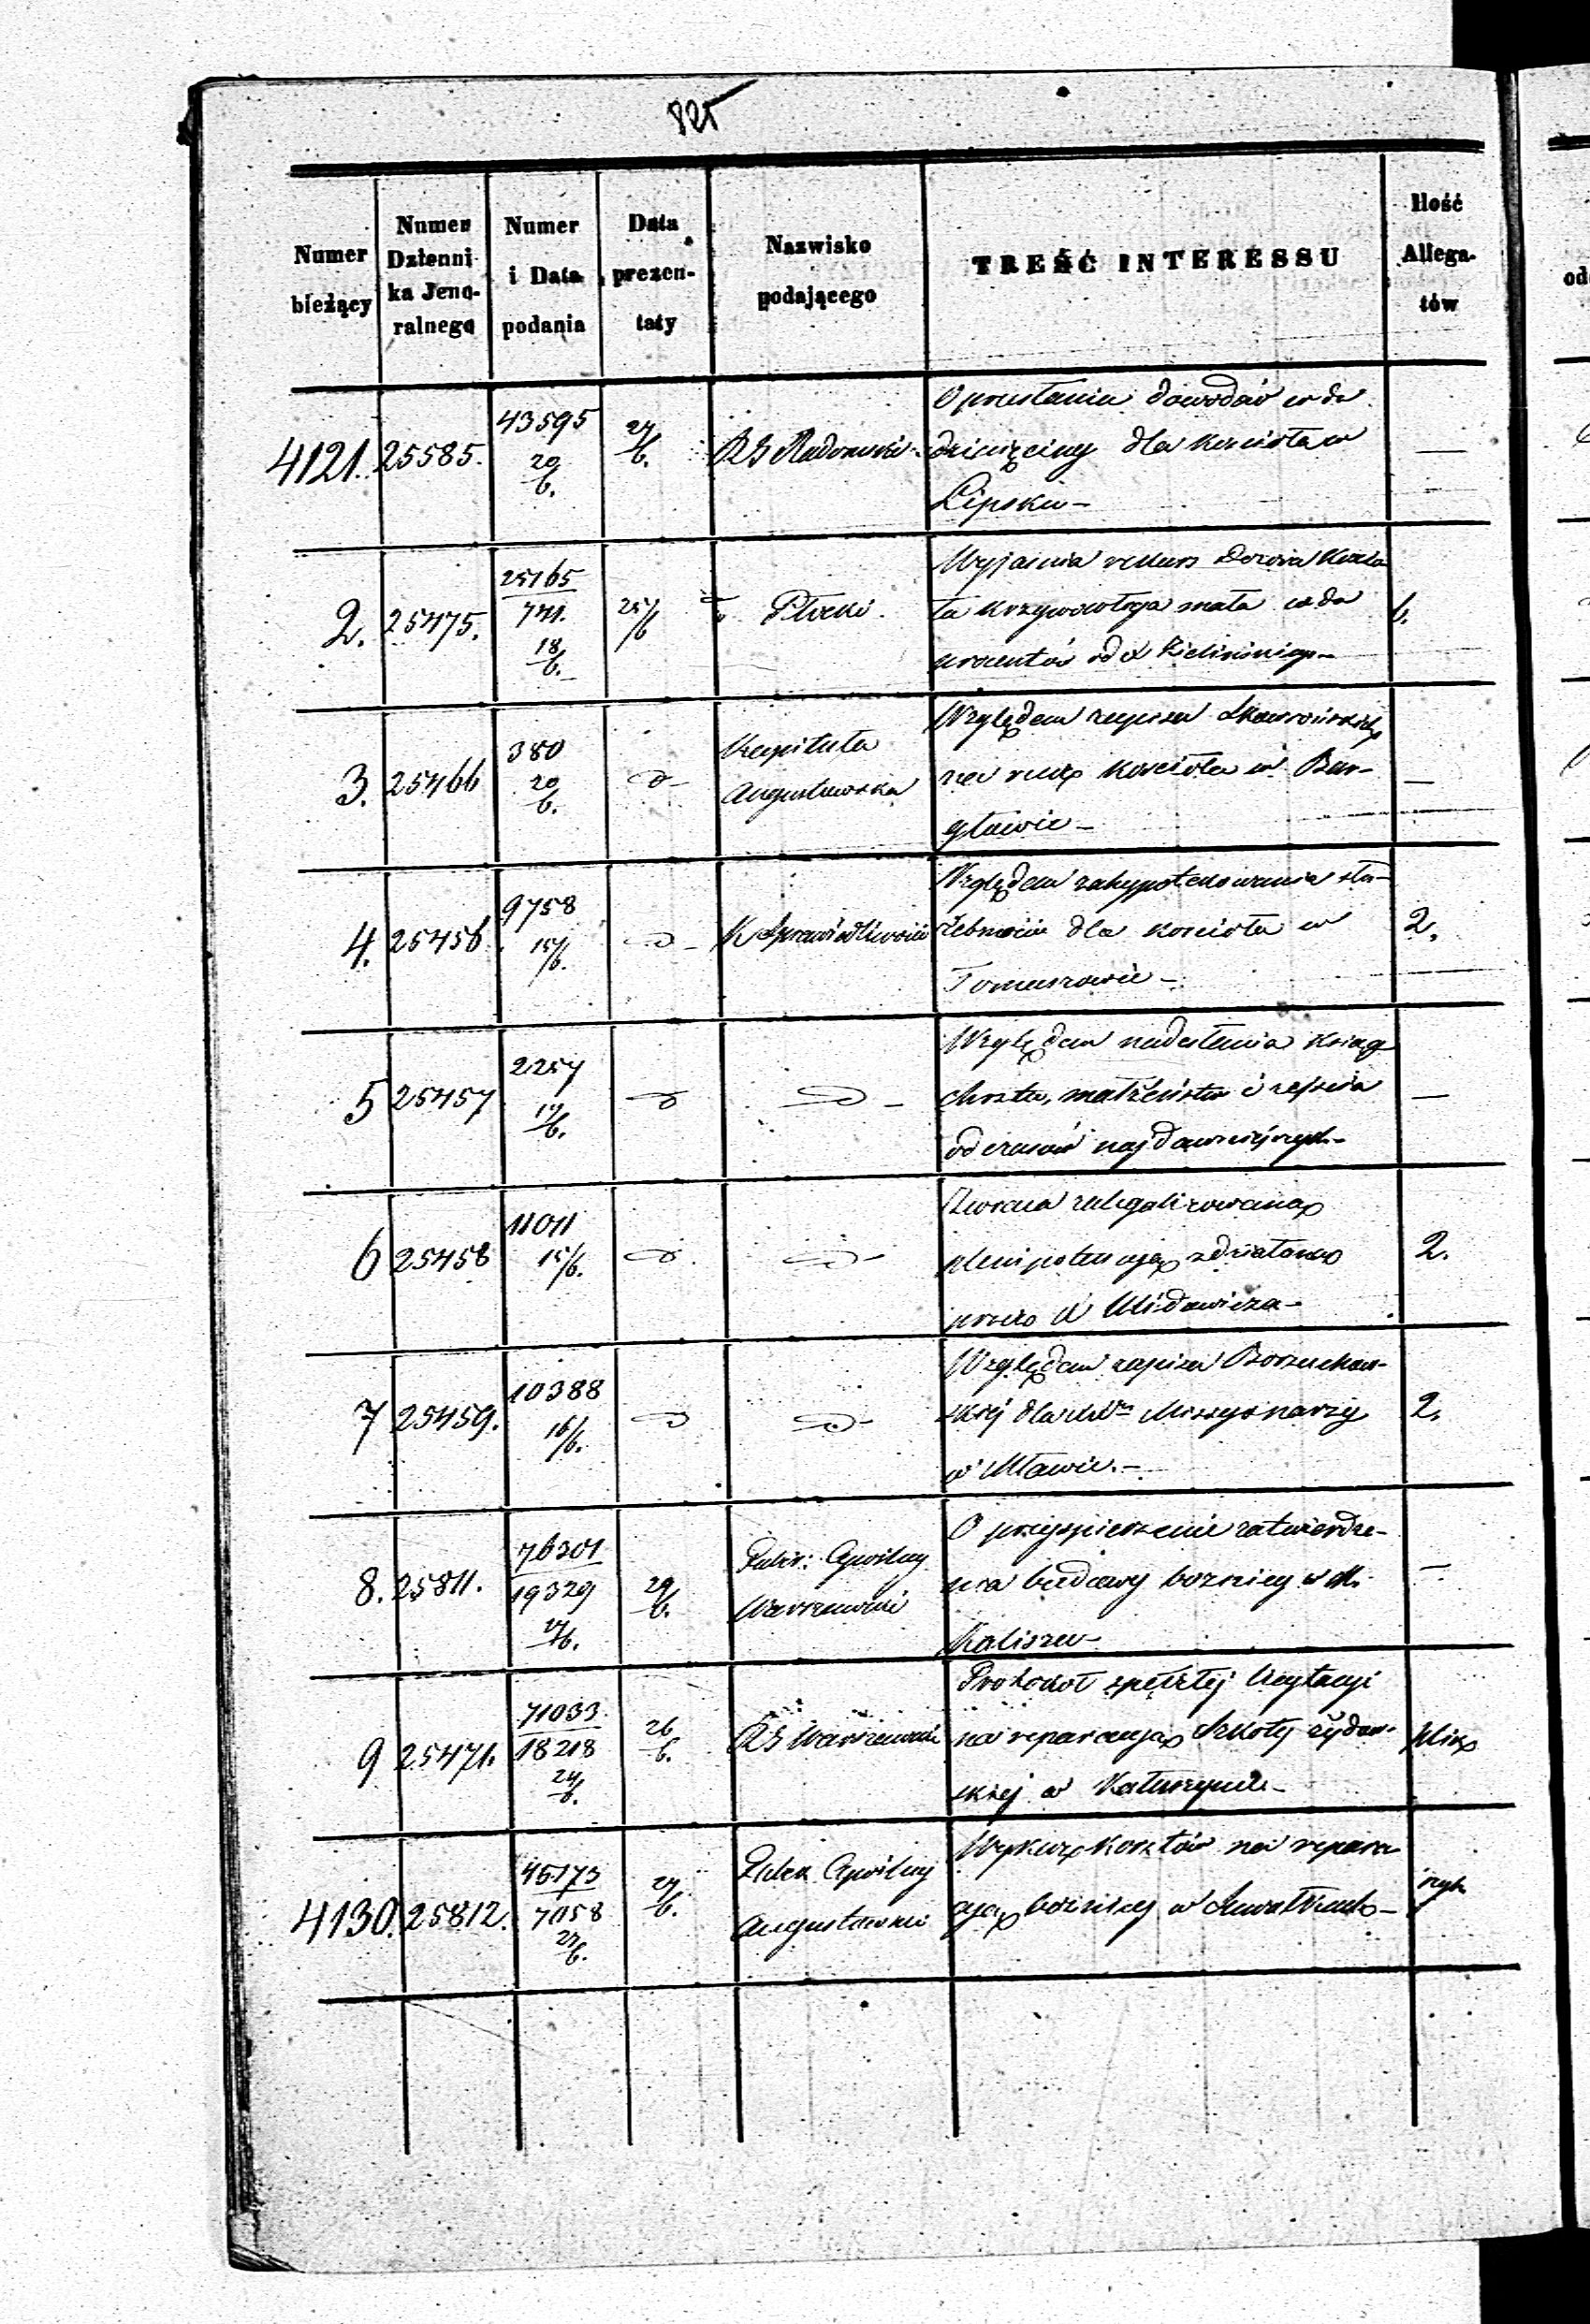 825
Numer bieżący
Numer Dzienni-ka Jene-ralnego
Numer i Data podania
Data prezen-taty
Nazwisko podającego
TREŚĆ INTERESSU
Ilość Allega-tów
4121. 25585. 43595 20/6. 27/6. RG Radomski
O przesłanie dowodów wda
dziesięciny dla kościoła w
Lipsku –
2. 25475. 25165 / 741. 18/6. 25/6 Płocki.
Wyjaśnia rekurs Dozoru Kościo
ła Krzynowłoga mała wda
procentów od Zielińskiego – 6.
3. 25466 380 20/6. d – Kapituła
Augustowska
Względem zapisu Skowrońskich
na rzecz kościoła w Bar-
gławie – —
4. 25456. 9758 15/6. d – K Sprawiedliwości
Względem zahypotekowania słu-
żebności dla kościoła w
Tomaszowie – 2.
5 25457 2257 17/6. d d –
Względem nadesłania ksiąg
chrztu, małżeństw i zejścia
od czasów najdawniejszych – —
6 25458 11011 15/6. d. d –
Zwraca zalegalizowaną
plenipotencyą zdziałaną
przez 2.
7 25459. 10388 16/6. d d –
Względem zapisu Borzuchow-
skiej dla Missyonarzy
w Mławie. – 2.
8. 25811. 76301 / 19329 27/6. 29/6. Guber: Cywilny
Warszawski
O przyspieszenie zatwierdze-
nia budowy bożnicy w M.
Kaliszu – —
9 25471. 71033 / 18218 24/6. 26/6. RG Warszawski
Protokół spełzłej licytacyi
na reparacyą Szkoły żydow-
skiej w Kałuszynie –
4130. 25812. 45173 / 7058 27/6. 29/6. Guber Cywilny
Augustowski
Wykaz kosztów na repara
cyą bożnicy w Suwałkach –